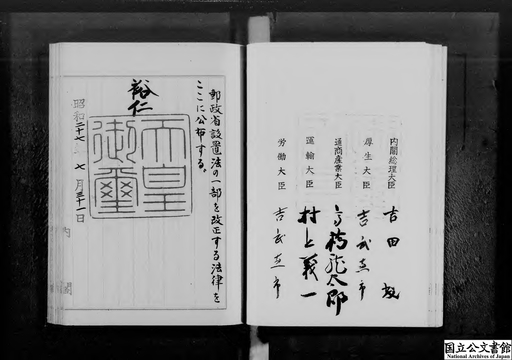 郵政省設置法の一部を改正する法律を
ここに公布する。
裕仁
天皇
御璽
昭和二十七年七月三十一日
内閣
内閣総理大臣 吉田茂
厚生大臣 吉武恵市
通商産業大臣 高橋龍太郎
運輸大臣 村上義一
労働大臣 吉武恵市
国立公文書館
National Archives of Japan